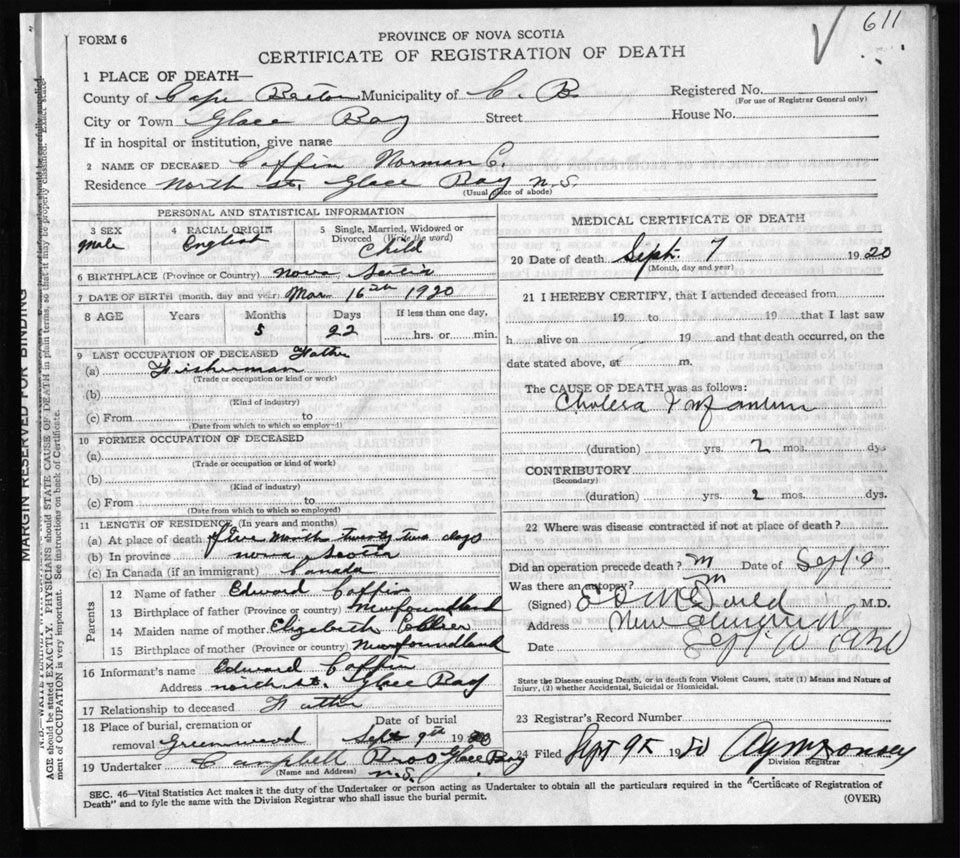 611
FORM 6
PROVINCE OF NOVA SCOTIA
CERTIFICATE OF REGISTRATION OF DEATH
1 PLACE OF DEATH—
County of Cape Breton Municipality of C. B.
Registered No.
(For use of Registrar General only)
City or Town Glace Bay Street
House No.
If in hospital or institution, give name
2 NAME OF DECEASED Coffin Norman C.
Residence North St. Glace Bay N.S.
(Usual place of abode)
PERSONAL AND STATISTICAL INFORMATION
3 SEX
Male
4 RACIAL ORIGIN
English
5 Single, Married, Widowed or Divorced (Write the word)
Child
6 BIRTHPLACE (Province or Country) Nova Scotia
7 DATE OF BIRTH (month, day and year) Mar 16th 1920
8 AGE Years Months Days If less than one day,
5 22 hrs. or min.
9 LAST OCCUPATION OF DECEASED Father
(a) Fisherman
(Trade or occupation or kind or work)
(b)
(Kind of industry)
(c) From to
(Date from which to which so employed)
10 FORMER OCCUPATION OF DECEASED
(a)
(Trade or occupation or kind of work)
(b)
(Kind of industry)
(c) From to
(Date from which to which so employed)
11 LENGTH OF RESIDENCE (In years and months)
(a) At place of death five month twenty two days
(b) In province Nova Scotia
(c) In Canada (if an immigrant) Canada
Parents
12 Name of father Edward Coffin
13 Birthplace of father (Province or country) Newfoundland
14 Maiden name of mother Elizabeth
15 Birthplace of mother (Province or country) Newfoundland
16 Informant's name Edward Coffin
Address North St. Glace Bay
17 Relationship to deceased Father
18 Place of burial, cremation or removal Greenwood
Date of burial Sept 9th 1920
19 Undertaker Campbell Bros Glace Bay
(Name and Address) N.S.
MEDICAL CERTIFICATE OF DEATH
20 Date of death Sept. 7 1920
(Month, day and year)
21 I HEREBY CERTIFY, that I attended deceased from
19 to 19 that I last saw
h alive on 19 and that death occurred, on the
date stated above, at m.
The CAUSE OF DEATH was as follows:
Cholera Infantum
(duration) yrs. 2 mos. dys
CONTRIBUTORY
(Secondary)
(duration) yrs. 2 mos. dys.
22 Where was disease contracted if not at place of death?
Did an operation precede death? Date of Sept 9
Was there an autopsy?
(Signed) M.D.
Address
Date Sept 10 1920
State the Disease causing Death, or in death from Violent Causes, state (1) Means and Nature of
Injury, (2) whether Accidental, Suicidal or Homicidal.
23 Registrar's Record Number
24 Filed Sept 9th 19
Division Registrar
SEC. 46—Vital Statistics Act makes it the duty of the Undertaker or person acting as Undertaker to obtain all the particulars required in the "Certificate of Registration of
Death" and to fyle the same with the Division Registrar who shall issue the burial permit.
(OVER)
MARGIN RESERVED FOR BINDING
AGE should be stated EXACTLY. PHYSICIANS should STATE CAUSE OF DEATH in plain terms, so that it may be properly classified. Exact state-
ment of OCCUPATION is very important. See instructions on back of Certificate.